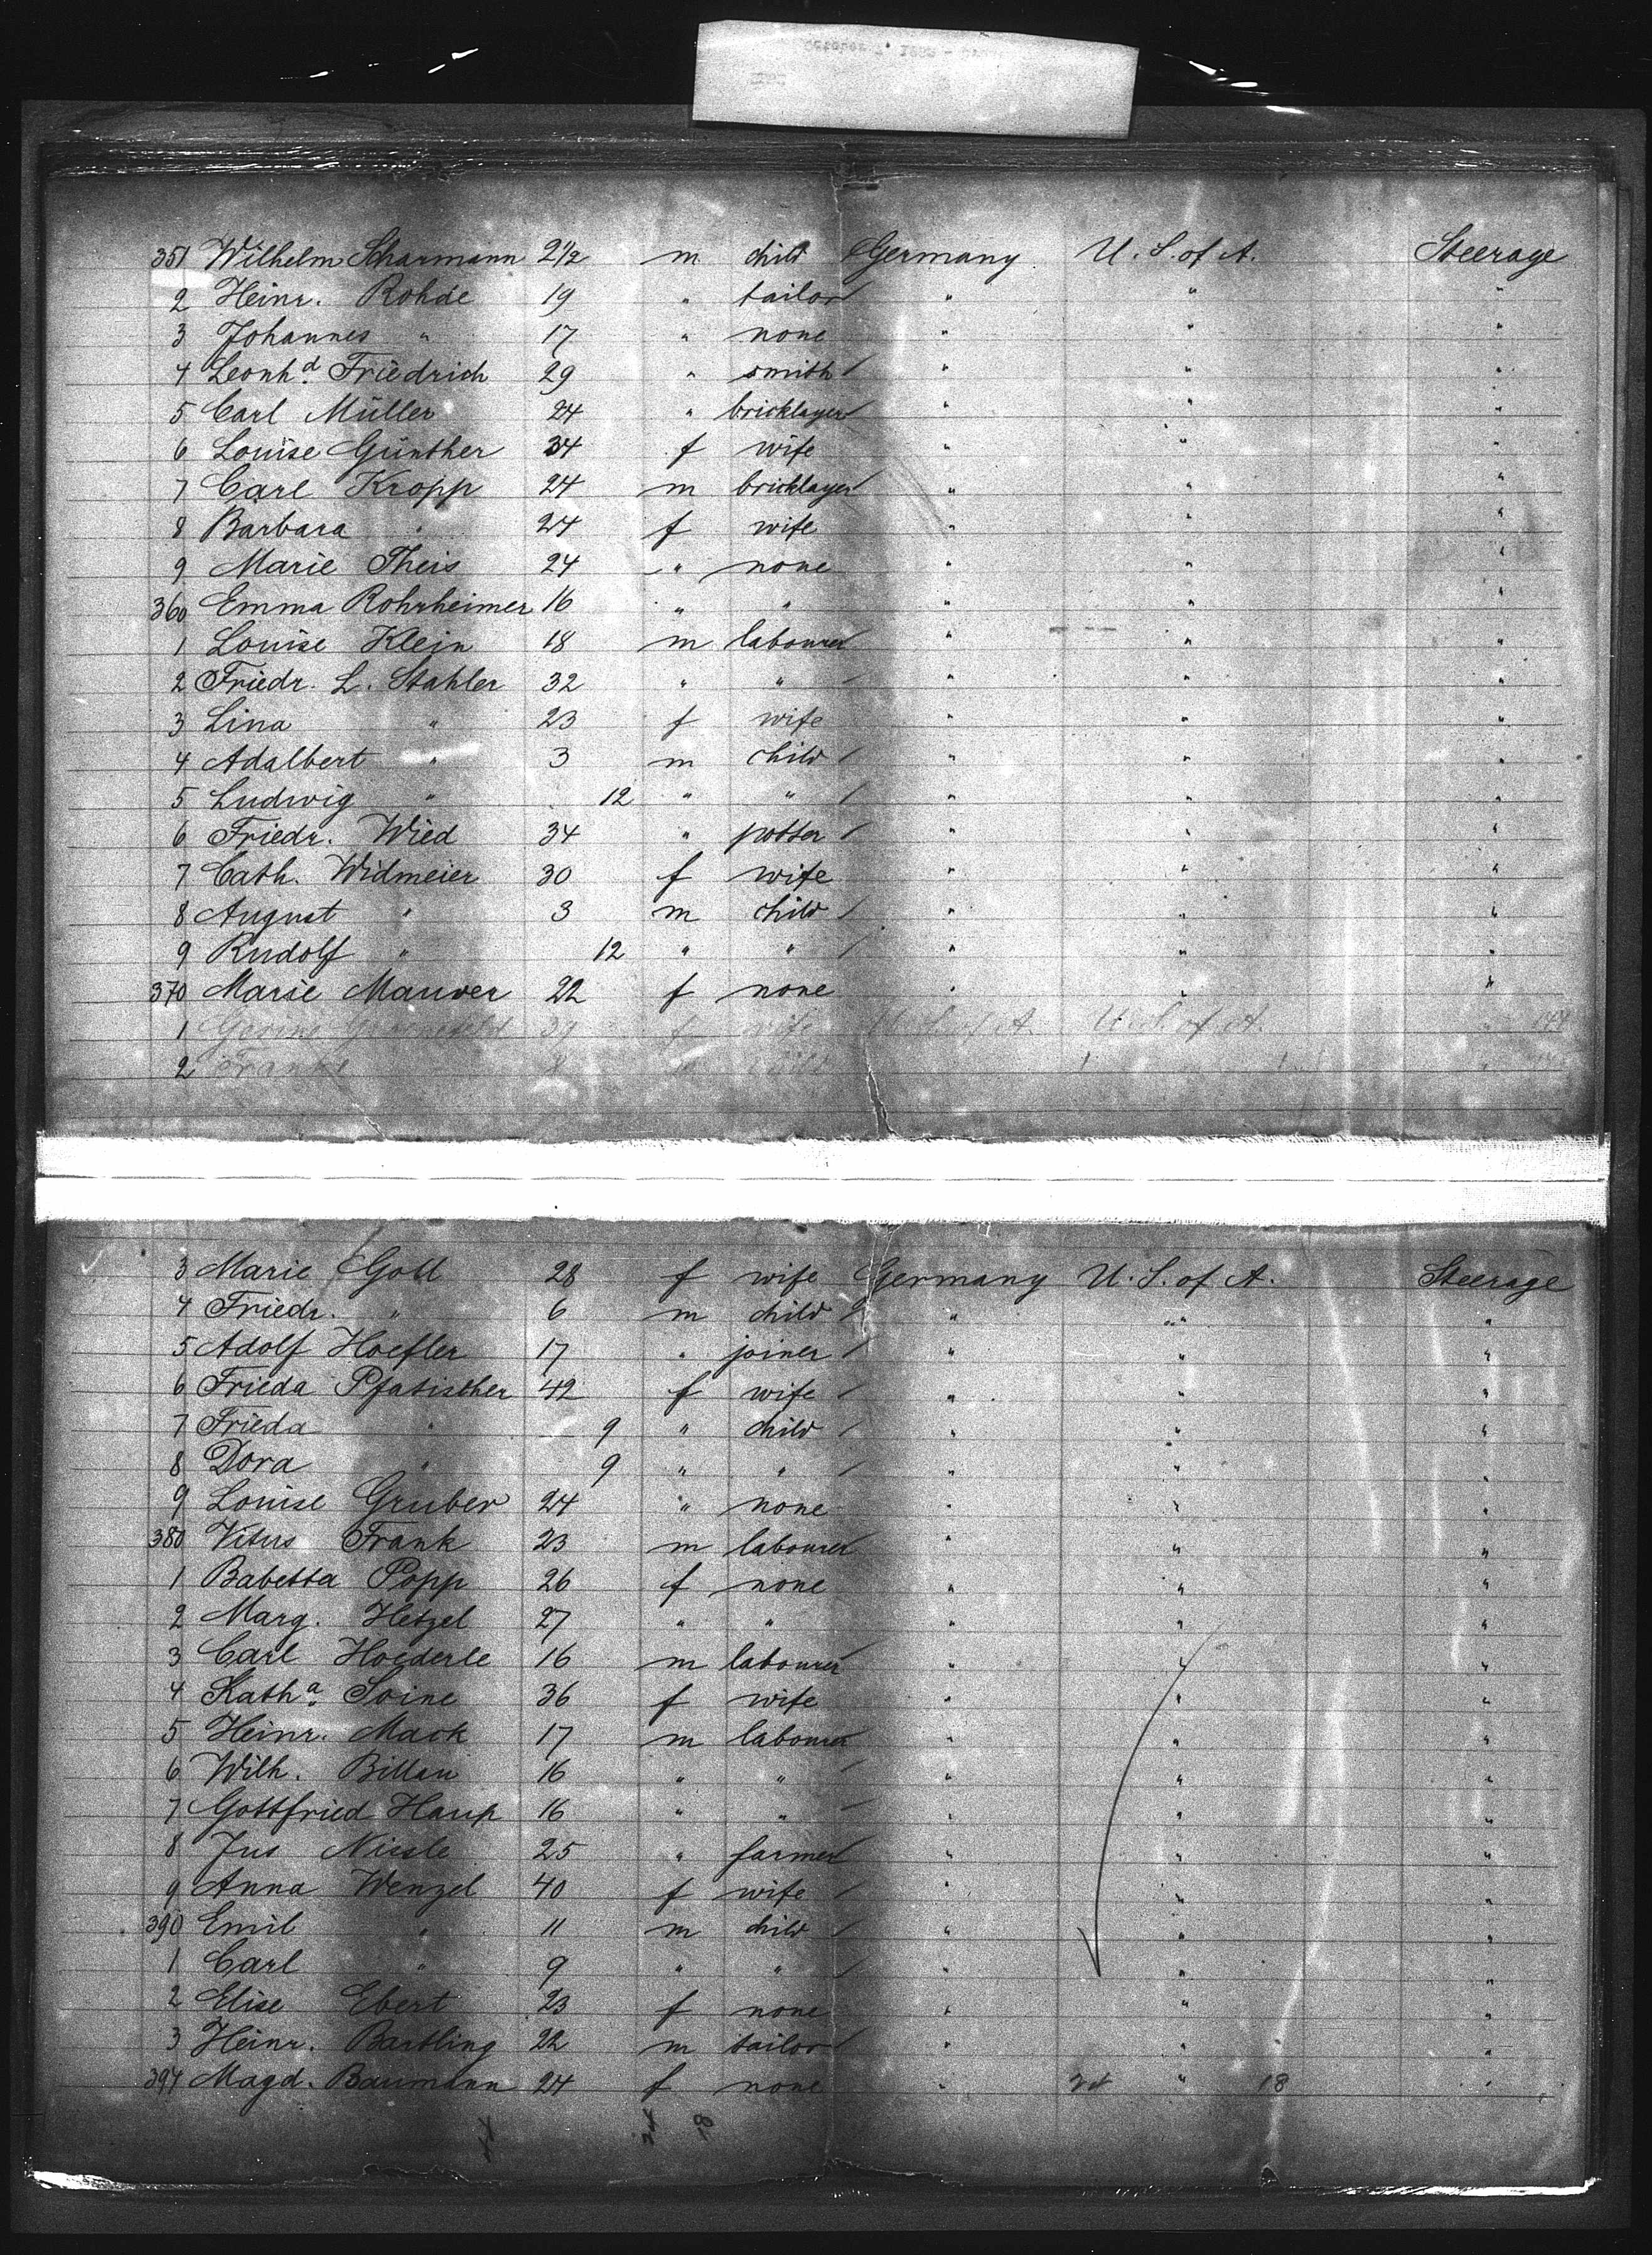 351 Wilhelm Scharmann 2½ m child Germany U. S. of A. Steerage
2 Heinr. Rohde 19 " tailor " " "
3 Johannes " 17 " none " " "
4 Leonhd. Friedrich 29 " smith " " "
5 Carl Müller 24 " bricklayer " " "
6 Louise Günther 34 f wife " " "
7 Carl Kropp 24 m bricklayer " " "
8 Barbara " 24 f wife " " "
9 Marie Theis 24 " none " " "
360 Emma Rohrheimer 16 " " " " "
1 Louise Klein 18 m labourer " " "
2 Friedr. L. Stahler 32 " " " " "
3 Lina " 23 f wife " " "
4 Adalbert " 3 m child " " "
5 Ludwig " 12 " " " " "
6 Friedr. Wied 34 " potter " " "
7 Cath. Widmeier 30 f wife " " "
8 August " 3 m child " " "
9 Rudolf " 12 " " " " "
370 Marie Mauver 22 f none " " "
1 39 f wife U. S. of A. U. S. of A. "
2 8 child "
3 Marie Goll 28 f wife Germany U. S. of A. Steerage
4 Friedr. " 6 m child " " "
5 Adolf Hoefler 17 " joiner " " "
6 Frieda Pfatischer 42 f wife " " "
7 Frieda " 9 " child " " "
8 Dora " 9 " " " " "
9 Louise Gruber 24 " none " " "
380 Vitus Frank 23 m labourer " " "
1 Babetta Popp 26 f none " " "
2 Marg. Hetzel 27 " " " " "
3 Carl Hoederle 16 m labourer " " "
4 Katha. Soine 36 f wife " " "
5 Heinr. Mack 17 m labourer " " "
6 Wilh. Billau 16 " " " " "
7 Gottfried Haup 16 " " " " "
8 Jus Nissle 25 " farmer " " "
9 Anna Wenzel 40 f wife " " "
390 Emil " 11 m child " " "
1 Carl " 9 " " " " "
2 Elise Ebert 23 f none " " "
3 Heinr. Bartling 22 m tailor " " "
394 Magd. Baumann 24 f none " " 18 "
18